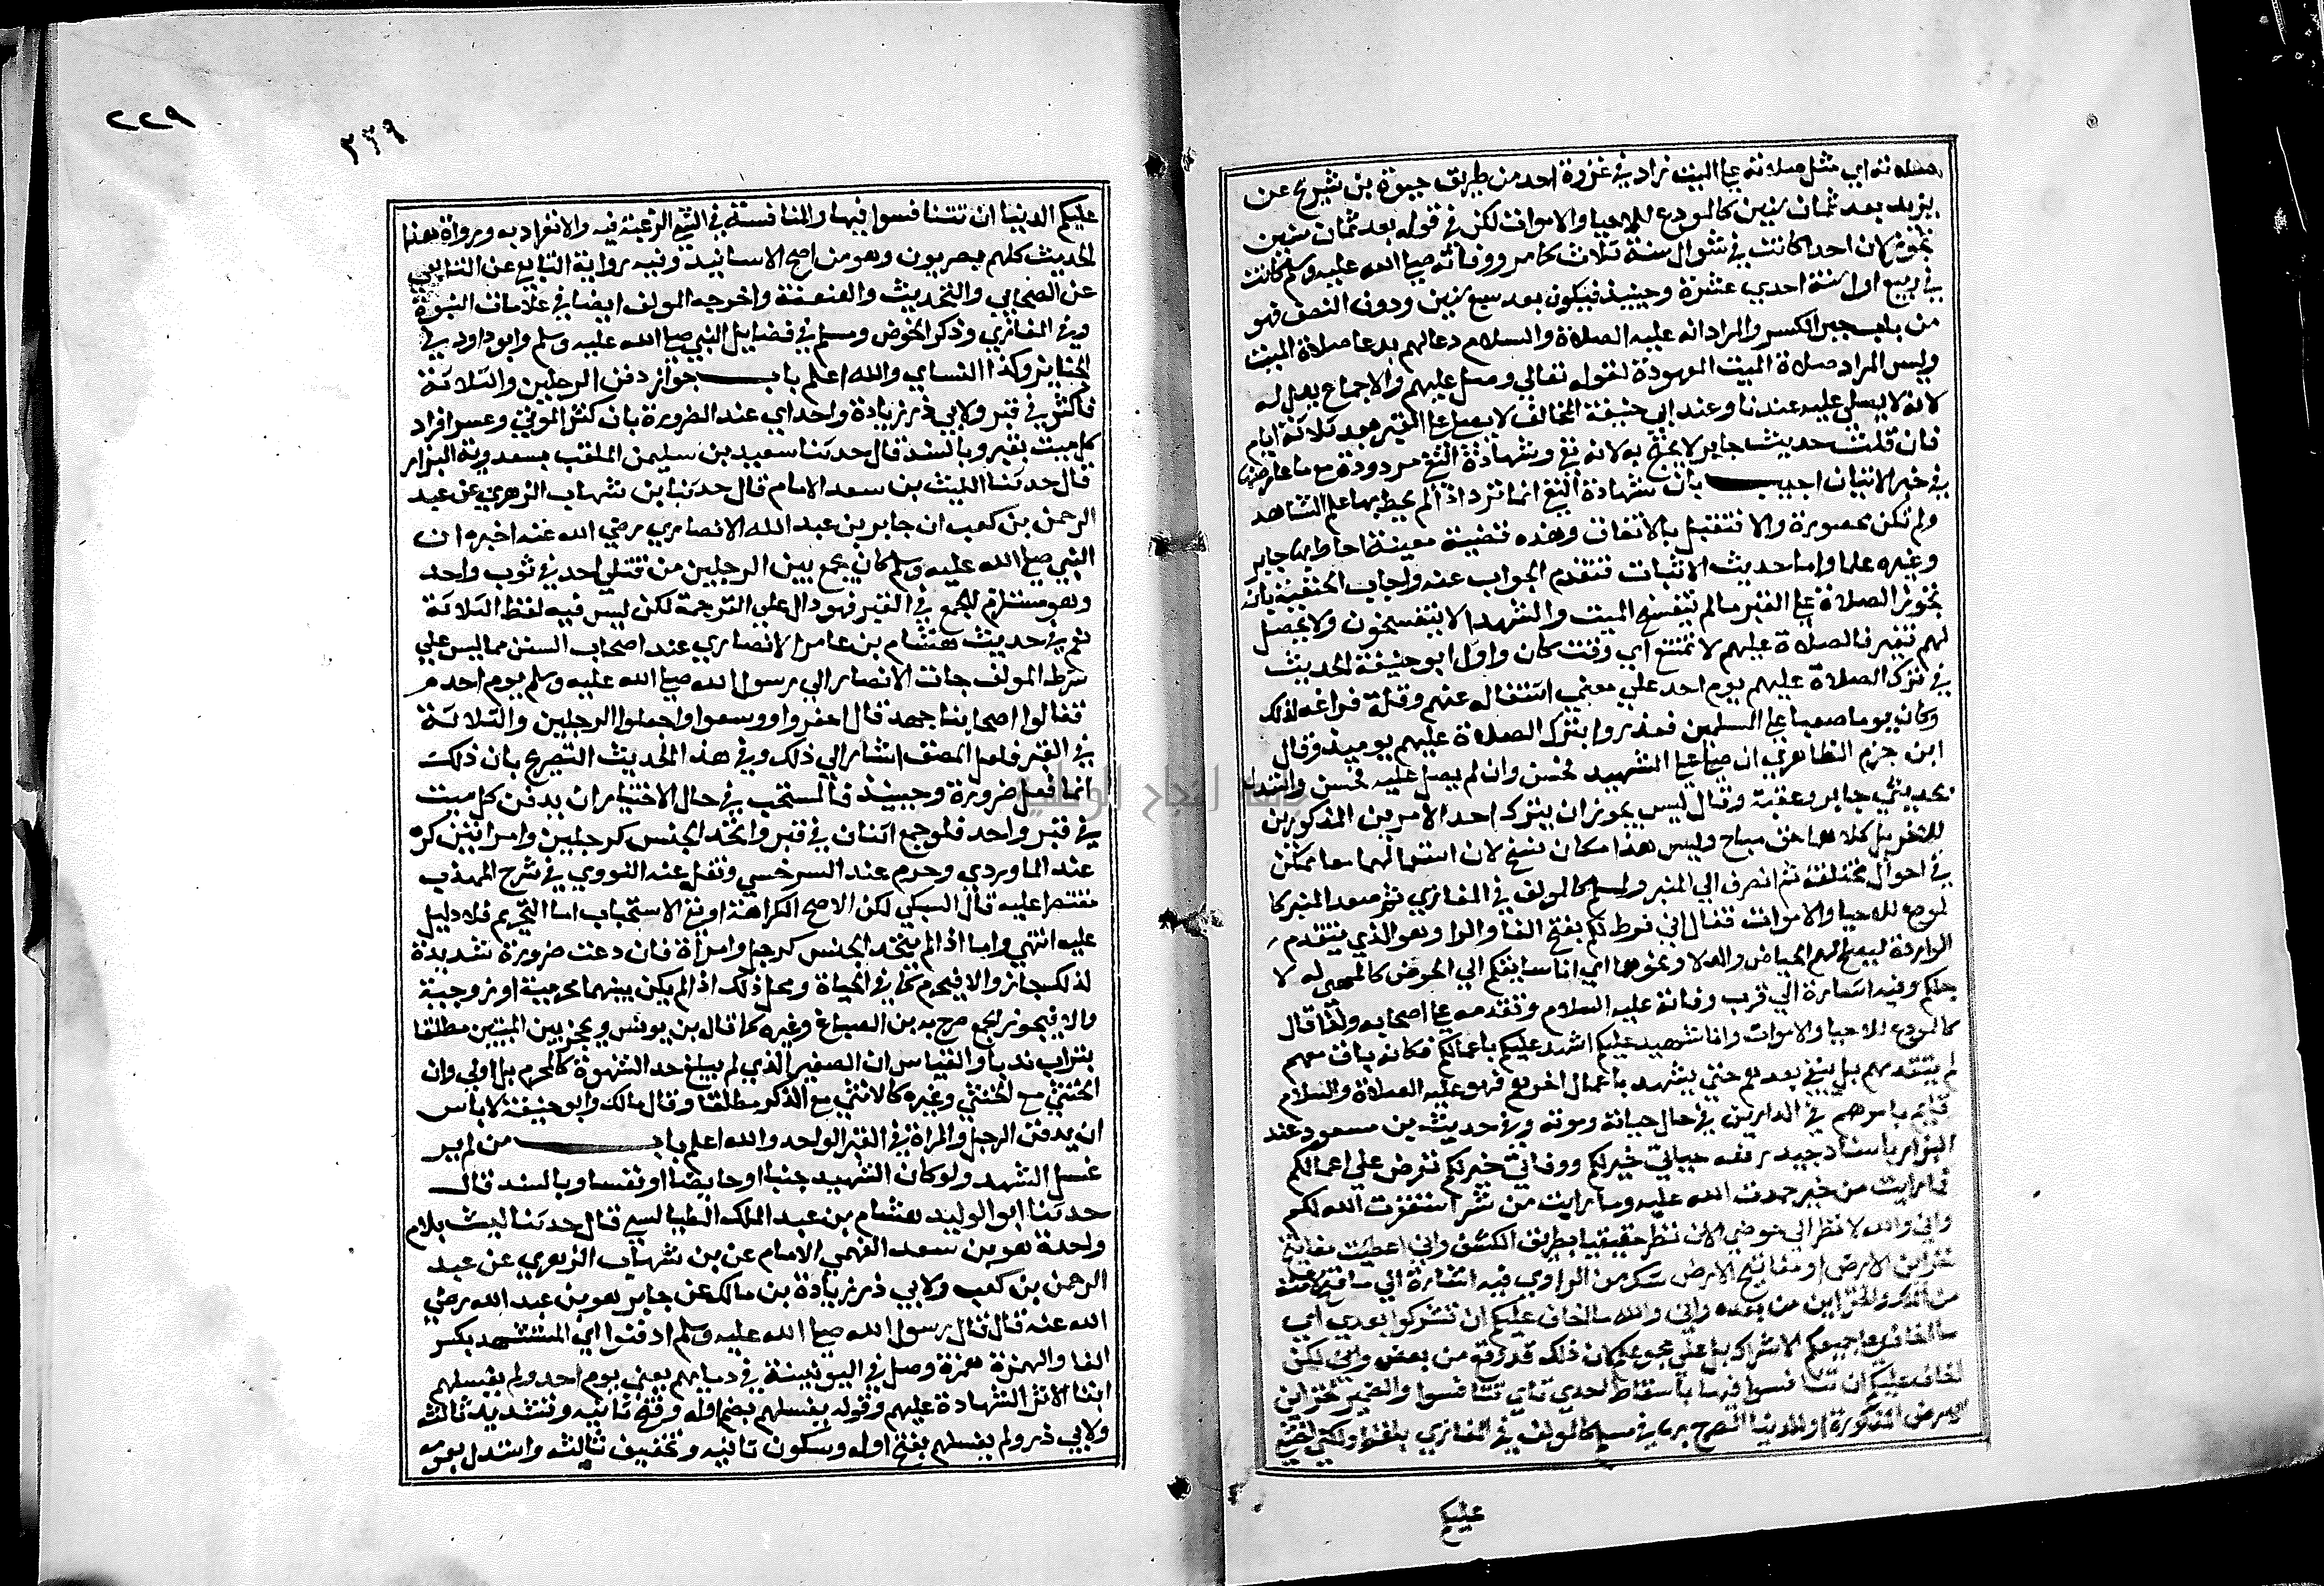 صلاته اي مثل صلاته علي الميت زاد في غزوة احد من طريق حيوة بن شريح عن
يزيد بعد ثمان سنين كالمودع للاحيا والاموات لكن في قوله بعد ثمان سنين
تجوز لان احدا كانت في شوال سنة ثلاث كما مر ووفاته صلي الله عليه وسلم كانت
في ربيع اول سنة احدي عشرة وحينيذ فيكون بعد سبع سنين ودون النصف فهو
من باب جبر الكسر والمراد انه عليه الصلاة والسلام دعا لهم بدعا صلاة الميت
وليس المراد صلاة الميت المعهودة لقوله تعالي وصل عليهم والاجماع يدل له
لانه لا يصلي عليه عندنا وعند ابي حنيفة المخالف لا يصلي علي القبر بعد ثلاثة ايام
فان قلت حديث جابر لا يحتج به لانه نفي وشهادة النفي مردودة مع ما عارضها
في خبر الاثبات اجيب بان شهادة النفي انما ترد اذا لم يحط بها علم الشاهد
ولم تكن محصورة والا فتقبل بالاتفاق وهذه قضية معينة احاط بها جابر
وغيره علما واما حديث الاثبات فتقدم الجواب عنه واجاب الحنفية بانه
تجوز الصلاة علي القبر ما لم يتفسخ الميت والشهدا لا يتفسخون ولا يحصل
لهم تغير فالصلاة عليهم لا تمتنع اي وقت كان واول ابو حنيفة الحديث
في ترك الصلاة عليهم يوم احد علي معني اشتغاله عنهم وقلة فراغه لذلك
وكان يوما صعبا علي المسلمين فعذروا بترك الصلاة عليهم يوميذ وقال
ابن حزم الظاهري ان صلي علي الشهيد فحسن وان لم يصل عليه فحسن واستدل
بحديثي جابر وعقبة وقال ليس يجوز ان يترك احد الامرين المذكورين
للاخر بل كلاهما حق مباح وليس هذا مكان نسخ لان استعمالهما معا ممكن
في احوال مختلفة ثم انصرف الي المنبر ولمسلم كالمولف في المغازي ثم صعد المنبر كا
لمودع للاحيا والاموات فقال اني فرط لكم بفتح الفا والرا وهو الذي يتقدم
الواردة ليصلح لهم الحياض والدلا ونحوهما اي انا سابقكم الي الحوض كالمهي له لا
جلكم وفيه اشارة الي قرب وفاته عليه السلام وتقدمه علي اصحابه ولذا قال
كالمودع للاحيا والاموات وانا شهيد عليكم اشهد عليكم باعمالكم فكانه باق معهم
لم يتقدمهم بل يبقي بعدهم حتي يشهد باعمال اخرهم فهو عليه الصلاة والسلام
قايم بامرهم في الدارين في حال حياته وموته وفي حديث بن مسعود عند
البزار باسناد جيد رفعه حياتي خير لكم ووفاتي خير لكم تعرض علي اعمالكم
فما رايت من خير حمدت الله عليه وما رايت من شر استغفرت الله لكم
واني والله لانظر الي حوضي الان نظرا حقيقيا بطريق الكشف واني اعطيت مفاتيح
خزاين الارض او مفاتيح الارض شك من الراوي فيه اشارة الي ما فتح لامته
من الملك والخزاين من بعده واني والله ما اخاف عليكم ان تشركوا بعدي اي
ما اخاف علي جميعكم الاشراك بل علي مجموعكم لان ذلك قد وقع من بعض ولكن
اخاف عليكم ان تنافسوا فيها باسقاط احدي تاي تتنافسوا والضمير لخزاين
الارض المذكورة او للدنيا المصرح بها في مسلم كالمولف في المغازي بلفظ ولكني اخشي
عليكم
٢٢٩
٣٣٩
عليكم الدنيا ان تتنافسوا فيها والمنافسة في الشي الرغبة فيه والانفراد به ورواة هذا
الحديث كلهم بصريون وهو من اصح الاسانيد وفيه رواية التابعي عن التابعي
عن الصحابي والتحديث والعنعنة واخرجه المولف ايضا في علامات النبوة
وفي المغازي وذكر الحوض ومسلم في فضايل النبي صلي الله عليه وسلم وابو داود في
الجنايز وكذا النساي والله اعلم باب جواز دفن الرجلين والثلاثة
فاكثر في قبر ولابي ذر زيادة واحد اي عند الضرورة بان كثر الموتي وعسر افراد
كل ميت بقبر وبالسند قال حدثنا سعيد بن سليمن الملقب بسعدوية البزار
قال حدثنا الليث بن سعد الامام قال حدثنا بن شهاب الزهري عن عبد
الرحمن بن كعب ان جابر بن عبد الله الانصاري رضي الله عنه اخبره ان
النبي صلي الله عليه وسلم كان يجمع بين الرجلين من قتلي احد في ثوب واحد
وهو مستلزم للجمع في القبر فهو دال علي الترجمة لكن ليس فيه لفظ الثلاثة
نعم في حديث هشام بن عامر الانصاري عند اصحاب السنن مما ليس علي
شرط المولف جات الانصار الي رسول الله صلي الله عليه وسلم يوم احد
فقالوا اصحابنا جهد قال احفروا ووسعوا واجعلوا الرجلين والثلاثة
في القبر فلعل المصنف اشار الي ذلك وفي هذ الحديث التصريح بان ذلك
انما فعل ضرورة وحينيذ فالمستحب في حال الاختيار ان يدفن كل ميت
في قبر واحد فلو جمع اثنان في قبر واتحد الجنس كرجلين وامراتين كره
عند الماوردي وحرم عند السرخسي ونقله عنه النووي في شرح المهذب
مقتصرا عليه قال السبكي لكن الاصح الكراهة او نفي الاستحباب اما التحريم فلا دليل
عليه انتهي واما اذا لم يتحد الجنس كرجل وامراة فان دعت ضرورة شديدة
لذلك جاز والا فيحرم كما في الحياة ومحل ذلك اذا لم يكن بينهما محرمية او زوجية
والا فيجوز الجمع صرح به بن الصباغ وغيره كما قال بن يونس ويحجز بين الميتين مطلقا
بتراب ندبا والقياس ان الصغير الذي لم يبلغ حد الشهوة كالمحرم بل اولي وان
الخنثي مع الخنثي وغيره كالانثي مع الذكر مطلقا وقال مالك وابو حنيفة لا باس
ان يدفن الرجل والمراة في القبر الواحد والله اعلم باب من لم ير
غسل الشهد ولو كان الشهيد جنبا او حايضا او نفسا وبالسند قال
حدثنا ابو الوليد هشام بن عبد الملك الطيالسي قال حدثنا ليث بلام
واحدة هو بن سعد الفهمي الامام عن بن شهاب الزهري عن عبد
الرحمن بن كعب ولابي ذر زيادة بن مالك عن جابر هو بن عبد الله رضي
الله عنه قال قال رسول الله صلي الله عليه وسلم ادفنوا اي المستشهد بكسر
الفا والهمزة همزة وصل في اليونينية في دمايهم يعني يوم احد ولم يغسلهم
ابقا لاثر الشهادة عليهم وقوله يغسلهم بضم اوله وفتح ثانيه وتشديد ثالثه
ولابي ذر ولم يغسلهم بفتح اوله وسكون ثانيه وتخفيف ثالثه واستدل بعو